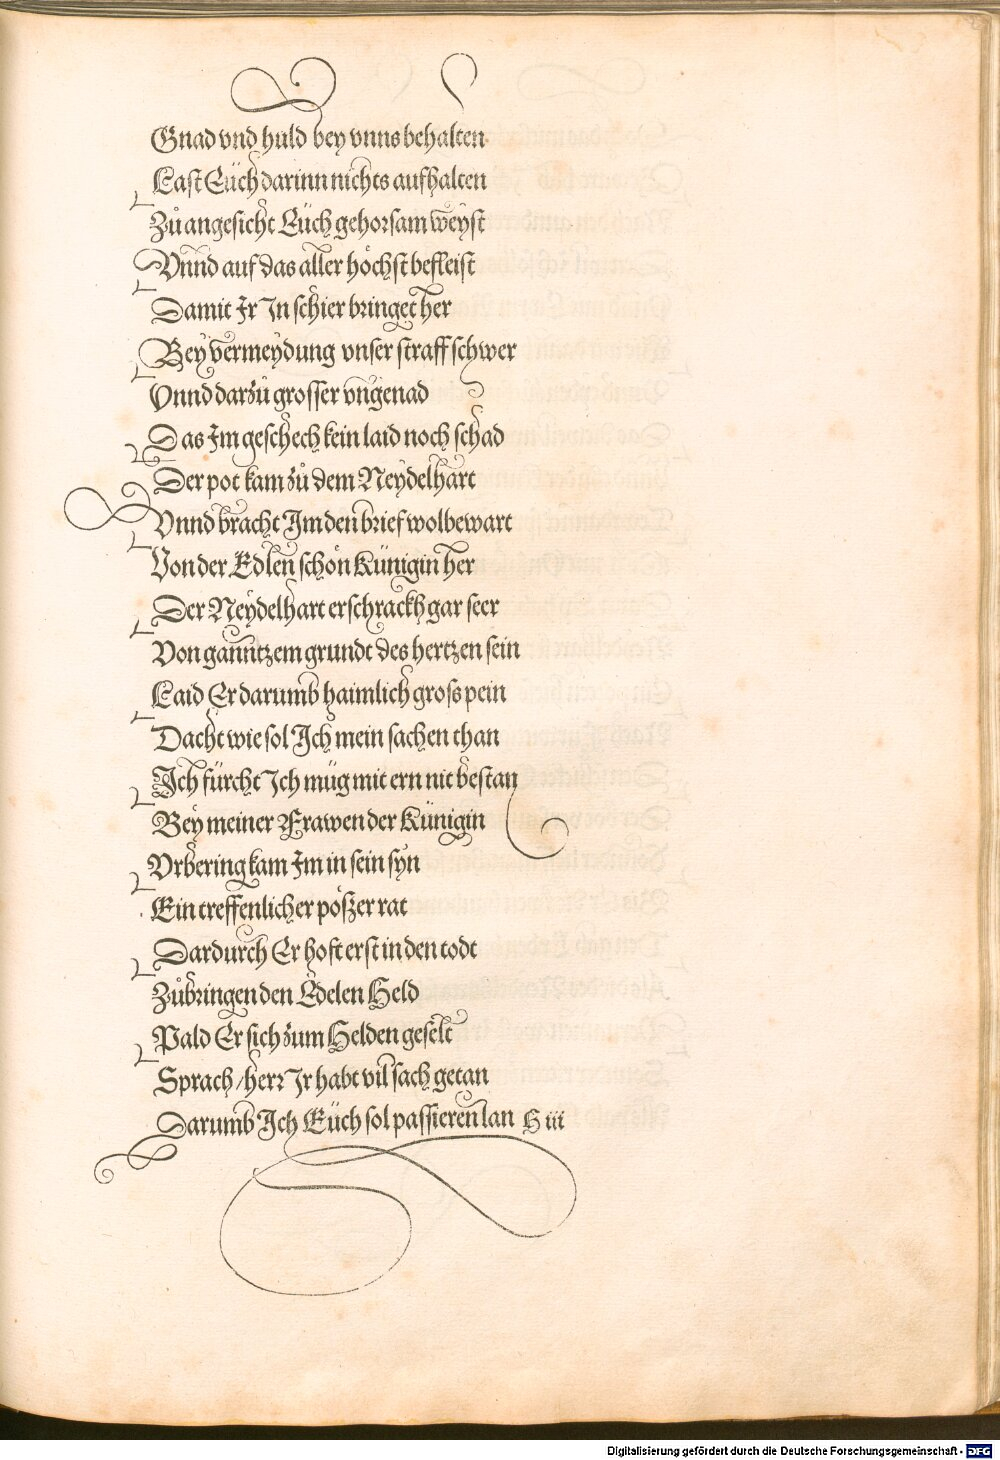 Gnad vnd huld bey vnns behalten
Last Eüch darinn nichts aufhalten
Zů angesicht Eüch gehorsam weyst
Vnnd auf das aller höchst befleist
Damit Ir In schier bringet her
Bey vermeydung vnser straff schwer
Vnnd darzů grosser vngenad
Das Im geschech kein laid noch schad
Der pot kam zů dem Neydelhart
Vnnd bracht Im den brief wolbewart
Von der Edlen schön Künigin her
Der Neydelhart erschrackh gar seer
Von ganntzem grundt des hertzen sein
Laid Er darumb haimlich gross pein
Dacht wie sol Ich mein sachen than
Ich fürcht Ich müg mit ern nit bestan
Bey meiner Frawen der Künigin
Vrbering kam Im in sein syn
Ein treffenlicher pöszer rat
Dardurch Er hoft erst in den todt
Zů bringen den Edelen Held
Pald Er sich zum Helden geselt
Sprach / herr Ir habt vil sach getan
Darumb Ich Eüch sol passieren lan H iii
Digitalisierung gefördert durch die Deutsche Forschungsgemeinschaft - DFG